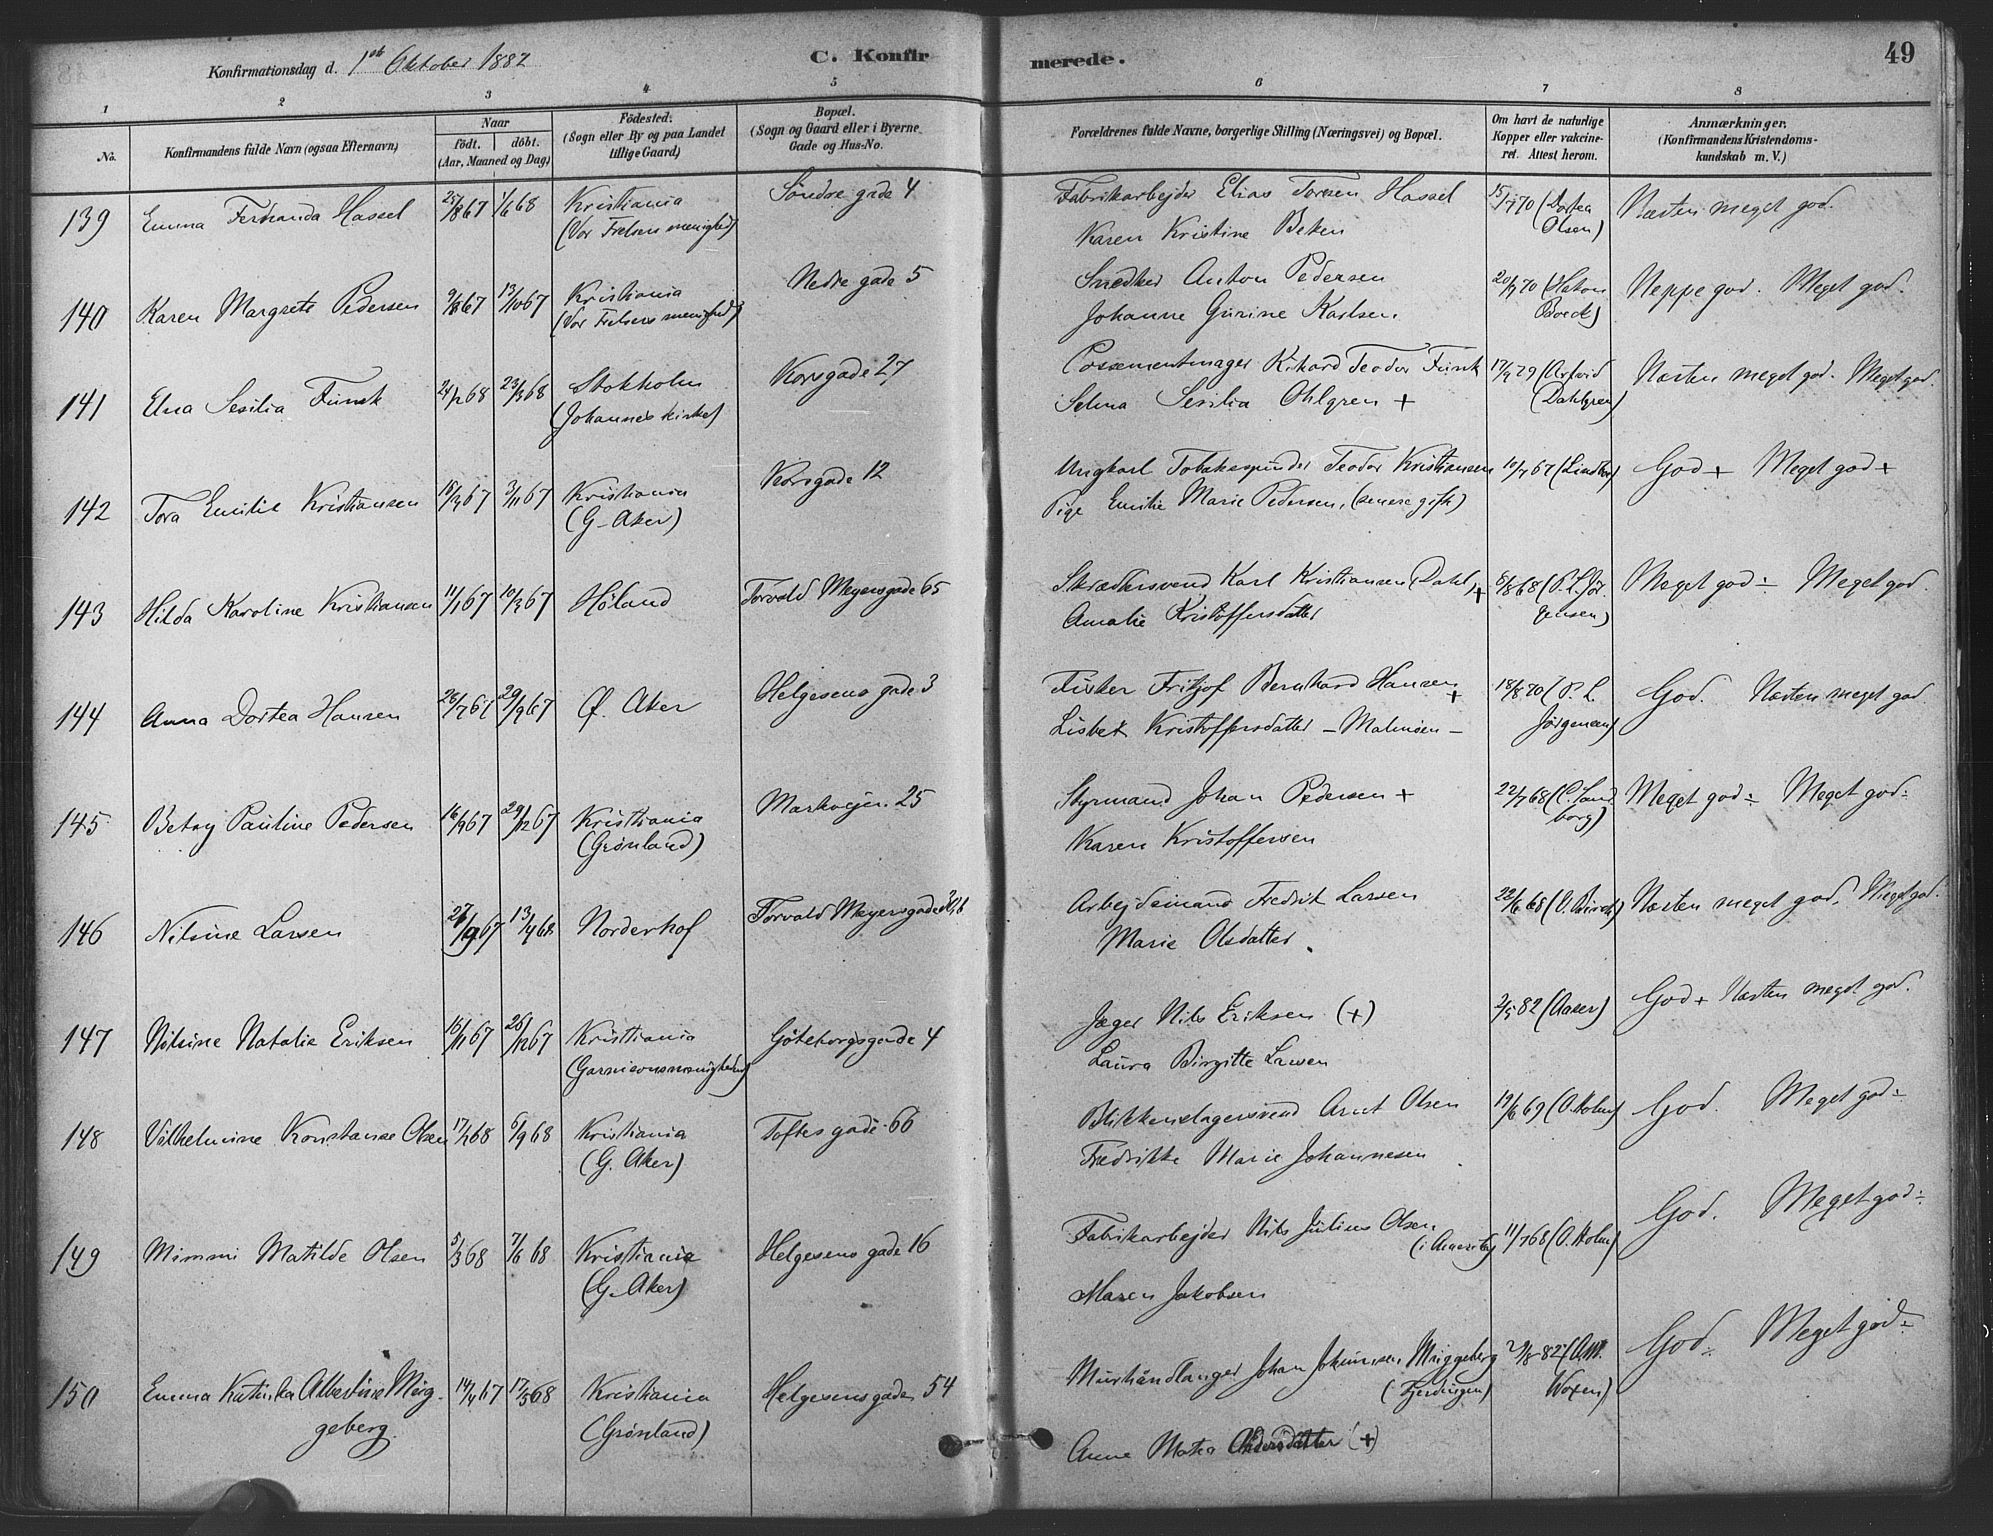 Konfirmationsdag d. 1ste Oktober 1882
C. Konfirmerede.
49
1 2 3 4 5 6 7 8
No.
Konfirmandens fulde Navn (ogsaa Efternavn)
Naar
födt. döbt.
(Aar, Maaned og Dag)
Födested.
(Sogn eller By og paa Landet
tillige Gaard)
Bopæl.
(Sogn og Gaard eller i Byerne
Gade og Hus-No.
Forældrenes fulde Navne, borgerlige Stilling (Næringsvei) og Bopæl.
Om havt de naturlige
Kopper eller vakcine-
ret. Attest herom.
Anmærkninger,
(Konfirmandens Kristendoms-
kundskab m. V.)
139 Emma Fernanda Hassel 25/8 67 1/6 68 Kristiania Söndre gade 4 Fabrikarbejder Elias Toresen Hassel 15/7 70 (Dortea Næsten meget god.
(Vor Frelsers menighed) Karen Kristine Beken Olsen)
140 Karen Margrete Pedersen 9/8 67 13/10 67 Kristiania Nedre gade 5 Snedker Anton Pedersen 20/9 70 Neppe god. Meget god.
(Vor Frelsers menighed) Johanne Gurine Karlsen. Boeck)
141 Elna Sesilia Funk 24/2 68 23/3 68 Stokholm Korsgade 27 Possementmager Rikard Teodor Funk 17/9 79 (Arfvid Næsten meget god. Meget god.
(Johannes kirke) Selma Sesilia Ohlgren + Dahlgren)
142 Tora Emilie Kristiansen 3/11 67 Kristiania Korsgade 12 Ungkarl Tobakspinder Teodor Kristiansen 10/7 67 God + Meget god +
(G. Aker) Pige Emilie Marie Pedersen, (senere gift)
143 Hilda Karoline Kristiansen 11/1 67 10/3 67 Höland Torvald Meyersgade 65 Skrædersvend Karl Kristiansen (Dahl) + 8/8 68 (P. L. Jör- Meget god ÷ Meget god
Amalie Kristoffersdatter gensen)
144 Anna Dortea Hansen 26/7 67 29/9 67 Ø. Aker Helgesens gade 3 Fisker Fritjof Bernhard Hansen + 18/8 70 (P. L. God. Næsten meget god
Lisbet Kristoffersdatter – Malmöen – Jörgensen)
145 Betsy Pauline Pedersen 16/9 67 29/12 67 Kristiania Markvejen 25 Styrmand Johan Pedersen + 22/7 68 (C. Sand Meget god ÷ Meget god ÷
(Grönland) Karen Kristoffersen borg)
146 Nilsine Larsen 27/9 67 13/4 68 Norderhof Torvald Meyersgade Arbejdsmand Fredrik Larsen 22/6 68 (O. Birch) Næsten meget god. Meget god.
Marie Olsdatter.
147 Nilsine Natalie Eriksen 16/11 67 26/12 67 Kristiania Göteborgsgade 4 Jæger Nils Eriksen (+) 2/5 82 (Aaser) God + Næsten meget god.
(Garnisonsmenigheden) Laura Birgitte Larsen
148 Vilhelmine Konstanse Olsen 17/1 68 6/9 68 Kristiania Toftes gade 66 Blikkenslagersvend Arnt Olsen 19/6 69 (O. Holm) God. Meget god ÷
(G. Aker) Fredrikke Marie Johannesen
149 Mimmi Matilde Olsen 5/3 68 7/6 68 Kristiania Helgesens gade 16 Fabrikarbejder Nils Julius Olsen 11/7 68 (O. Holm) God. Meget god ÷
(G. Aker) (i Amerika)
Maren Jakobsen
150 Emma Katinka Albertine Mög- 14/4 67 17/5 68 Kristiania Helgesensgade 54 Murhandlanger Johan Johannesen Muggeberg 2/8 82 (A. M. God ÷ Meget god ÷
geberg. (Grönland) (Fjerdingen) Woxen)
Anne Matea Andersdatter (+)